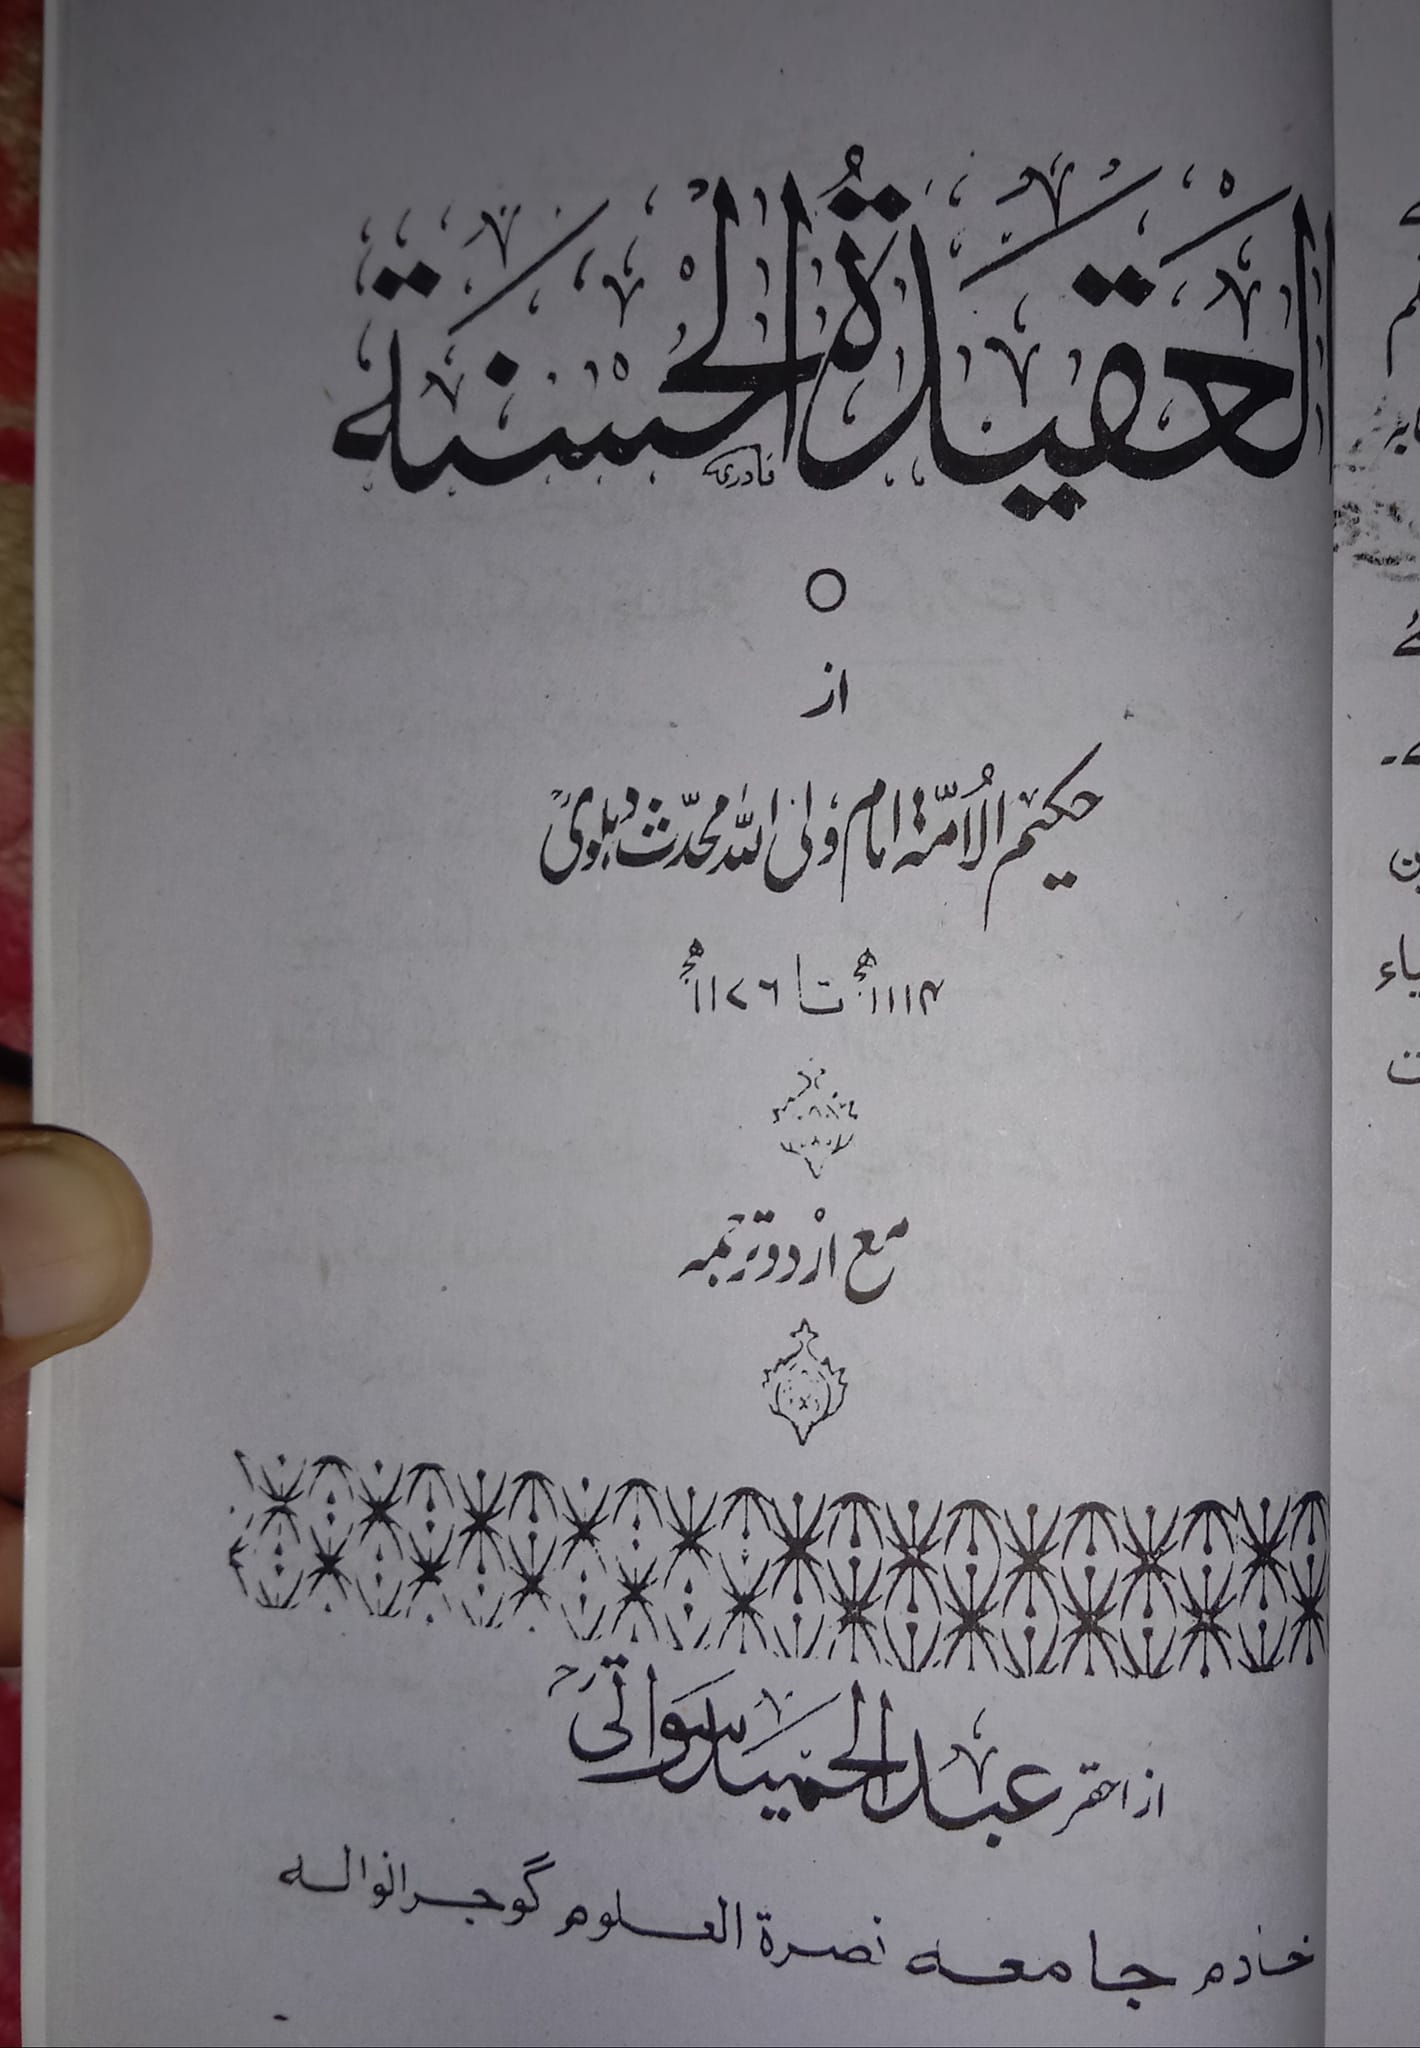 العقیدۃُ الحسنۃ
قادری
○
از
حکیم الاُمّۃ امام ولی اللہ محدّث دہلویؒ
۱۱۱۴ھ تا ۱۱۷۶ھ
مع اُردو ترجمہ
از احقر عبد الحمید سواتیؒ
خادم جامعہ نصرۃ العلوم گوجرانوالہ